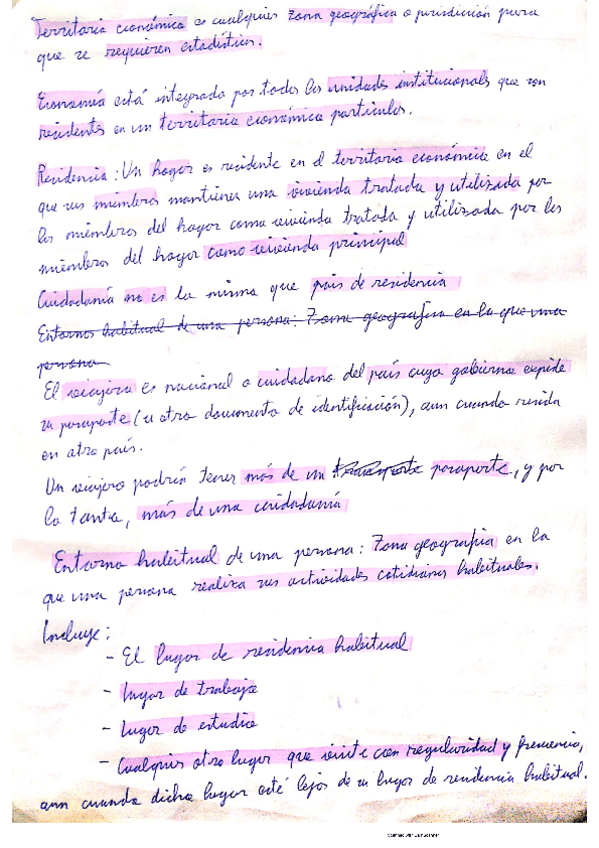 Territorio económico es cualquier zona geográfica o jurisdicción para
que se requieren estadísticas.
Economía está integrada por todas las unidades institucionales que son
residentes en un territorio económico particular.
Residencia: Un hogar es residente en el territorio económico en el
que sus miembros mantienen una vivienda tratada y utilizada por
los miembros del hogar como vivienda tratada y utilizada por los
miembros del hogar como vivienda principal
Cuidadanía no es la misma que país de residencia
Entorno habitual de una persona: Zona geográfica en la que una
persona
El viajero es nacional o cuidadano del país cuyo gobierno expide
su pasaporte (u otro documento de identificación), aun cuando resida
en otro país.
Un viajero podría tener más de un pasaporte, y por
lo tanto, más de una cuidadanía
Entorno habitual de una persona: Zona geográfica en la
que una persona realiza sus actividades cotidianas habituales.
Incluye:
- El lugar de residencia habitual
- Lugar de trabajo
- Lugar de estudio
- Cualquier otro lugar que visite con regularidad y frecuencia,
aun cuando dicho lugar esté lejos de su lugar de residencia habitual.